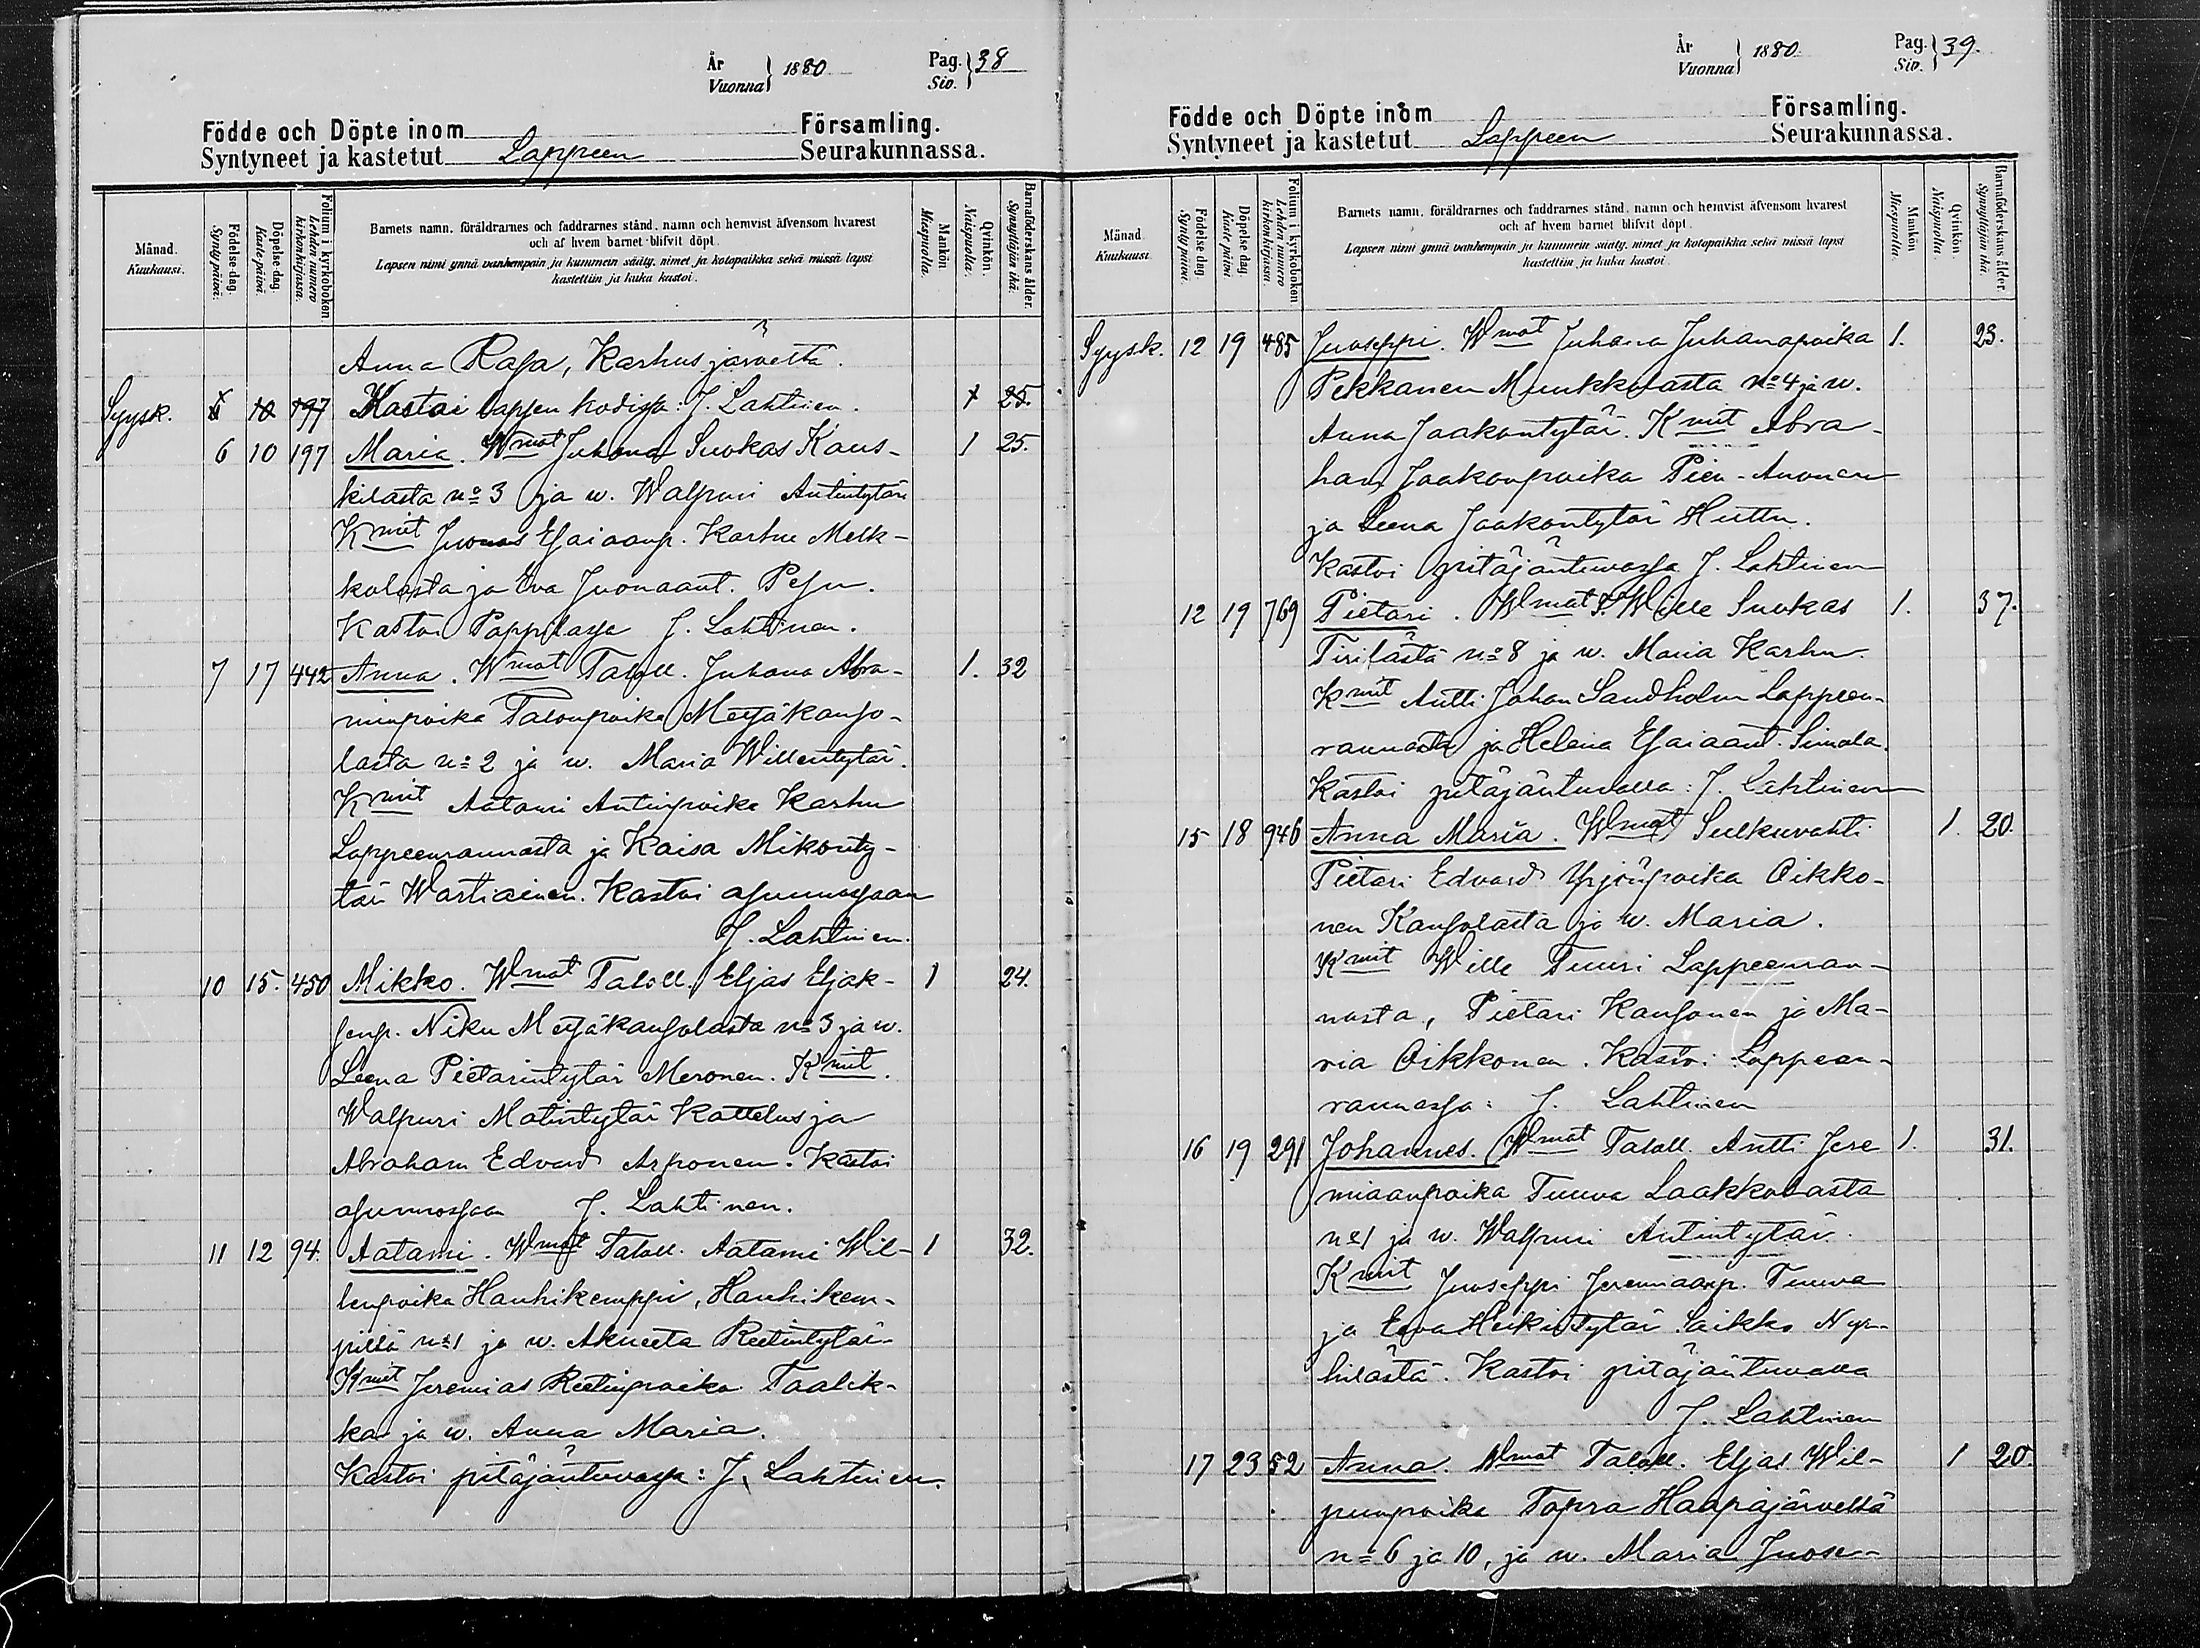 År
Vuonna } 1880
Pag.
Siv. } 38
Födde och Döpte inom Församling.
Syntyneet ja kastetut Lappeen Seurakunnassa.
Månad.
Kuukausi.
Födelse dag.
Synty päivä.
Döpelse dag.
Kaste päivä
Folium i kyrkoboken.
Lehden numero kirkonkirjassa.
Barnets namn, föräldrarnes och faddrarnes stånd, namn och hemvist äfvensom hvarest
och af hvem barnet blifvit döpt.
Lapsen nimi ynnä vanhempain ja kummein sääty, nimet ja kotopaikka sekä missä lapsi
kastettiin ja kuka kastoi.
Mankön
Miespuolia.
Qvinkön.
Naispuolia.
Barnaföderskans ålder.
Synnyttäjän ikä.
Anna Rasa, Karhusjärveltä.
Syysk. 6 10 197 Kastoi lapsen kodissa: J. Lahtinen. 1 25.
6 10 197 Maria. Wmat Juhana Suokas Kaus- 1 25.
kilasta no 3 ja w. Walpuri Antintytär
Kmit Juonas Esaiaanp. Karhu Melk-
kolasta ja Eva Juonaant. Pesu.
Kastoi Pappilassa J. Lahtinen.
7 17 442 Anna. Wmat Taloll. Juhana Abra- 1. 32
minpoika Talonpoika Metsäkanso-
lasta no 2 ja w. Maria Willentytär.
Kmit Aatami Antinpoika Karhu
Lappeenrannasta ja Kaisa Mikonty-
tär Wartiainen. Kastoi asunnossaan
J. Lahtinen.
10 15. 450 Mikko. Wmat Taloll. Eljas Eljak- 1 24.
senp. Niku Metsäkansolasta no 3 ja w.
Leena Pietarintytär Meronen. Kmit.
Walpuri Matintytär Kattelus ja
Abraham Edvard Asponen. Kastoi
asunnossaan J. Lahtinen.
11 12 94. Aatami. Wmat Taloll. Aatami Wil- 1 32.
lenpoika Hanhikemppi, Hanhikem-
pistä no 1 ja w. Akneeta Reetintytär
Kmit Jeremias Reetinpoika Taalik-
ka ja w. Anna Maria.
Kastoi pitäjäntuvassa: J. Lahtinen.
År
Vuonna } 1880
Pag.
Siv. } 39.
Födde och Döpte inom Församling.
Syntyneet ja kastetut Lappeen Seurakunnassa.
Månad.
Kuukausi
Födelse dag
Synty päivä.
Döpelse dag
Kaste päivä.
Folium i kyrkoboken
Lehden numero kirkonkirjassa.
Barnets namn, föräldrarnes och faddrarnes stånd, namn och hemvist äfvensom hvarest
och af hvem barnet blifvit döpt.
Lapsen nimi ynnä vanhempain ja kummein sääty, nimet ja kotopaikka sekä missä lapsi
kastettiin ja kuka kastoi.
Mankön
Miespuolia.
Qvinkön.
Naispuolia.
Barnaföderskans ålder.
Synnyttäjän ikä.
Syysk. 12 19 485 Juoseppi. Wmat Juhana Juhanapoika 1. 23.
Pekkanen Munkkolasta no 4 ja w.
Anna Jaakontytär. Kmit Abra-
ham Jaakonpoika Pien-Anonen
ja Leena Jaakontytär Huttu.
Kastoi pitäjäntuvassa J. Lahtinen
12 19 769 Pietari. Wmat Wille Suokas 1. 37.
Tirilästä no 8 ja w. Maria Karhu.
Kmit Antti Johan Sandholm Lappeen-
rannasta ja Helena Esaiaant. Simola.
Kastoi pitäjäntuvalla: J. Lahtinen
15 18 946 Anna Maria. Wmat Sulkuvahti 1. 20.
Pietari Edvard Yrjönpoika Oikko-
nen Kansolasta ja w. Maria.
Kmit Wille Tuuri Lappeenran-
nasta, Pietari Kansonen ja Ma-
ria Oikkonen. Kastoi Lappeen-
rannassa: J. Lahtinen
16 19 291 Johannes. Wmat Taloll. Antti Jere 1. 31.
miaanpoika Tuuva Laakkolasta
no 1 ja w. Walpuri Antintytär.
Kmit Juoseppi Jeremiaanp. Tuuva
ja Eeva Heikintytär Saikko Nyr-
hilästä. Kastoi pitäjäntuvalla
J. Lahtinen
17 23 52 Anna. Wmat Taloll. Eljas Wil- 1 20.
punpoika Topra Haapajärveltä
no 6 ja 10, ja w. Maria Juose-